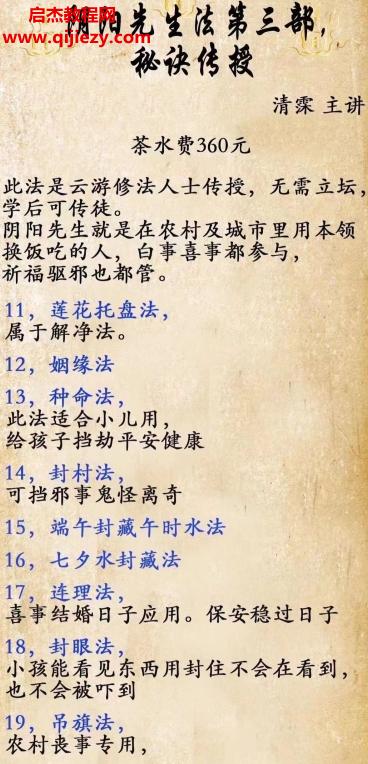 启杰教程网
www.qijiezy.com
阴阳先生法第三部，
秘诀传授
清霂 主讲
茶水费360元
此法是云游修法人士传授，无需立坛，
学后可传徒。
阴阳先生就是在农村及城市里用本领
换饭吃的人，白事喜事都参与，
祈福驱邪也都管。
11，莲花托盘法，
属于解净法。
12，姻缘法
13，种命法，
此法适合小儿用，
给孩子挡劫平安健康
14，封村法，
可挡邪事鬼怪离奇
15，端午封藏午时水法
16，七夕水封藏法
17，连理法，
喜事结婚日子应用。保安稳过日子
18，封眼法，
小孩能看见东西用封住不会在看到，
也不会被吓到
19，吊旗法，
农村丧事专用，